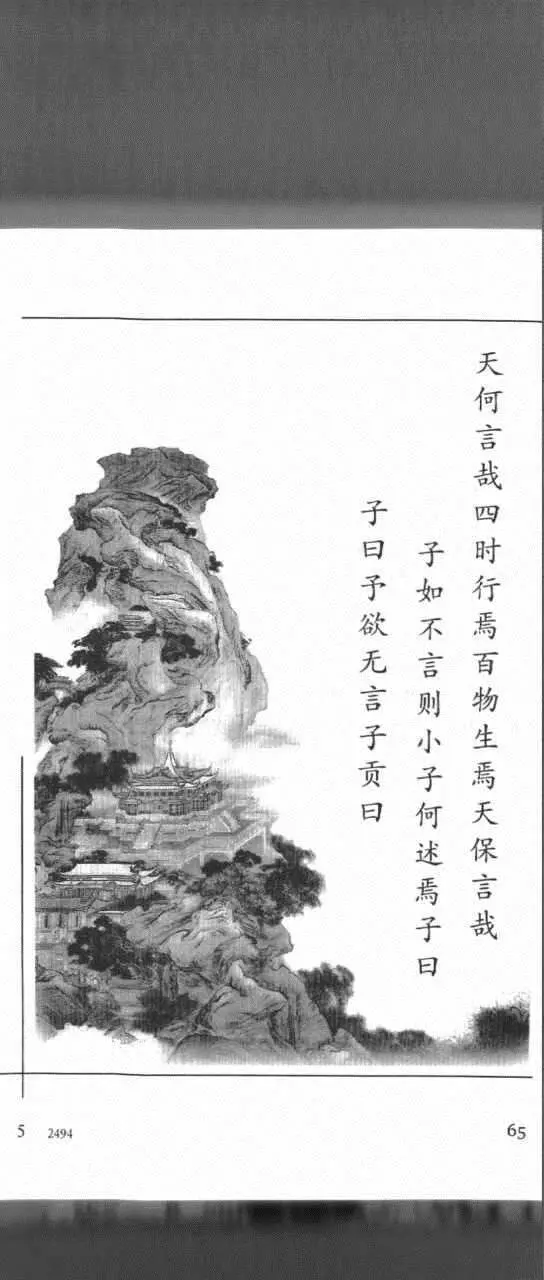 天何言哉四时行焉百物生焉天保言哉
子如不言则小子何述焉子曰
子曰予欲无言子贡曰
5 2494
65